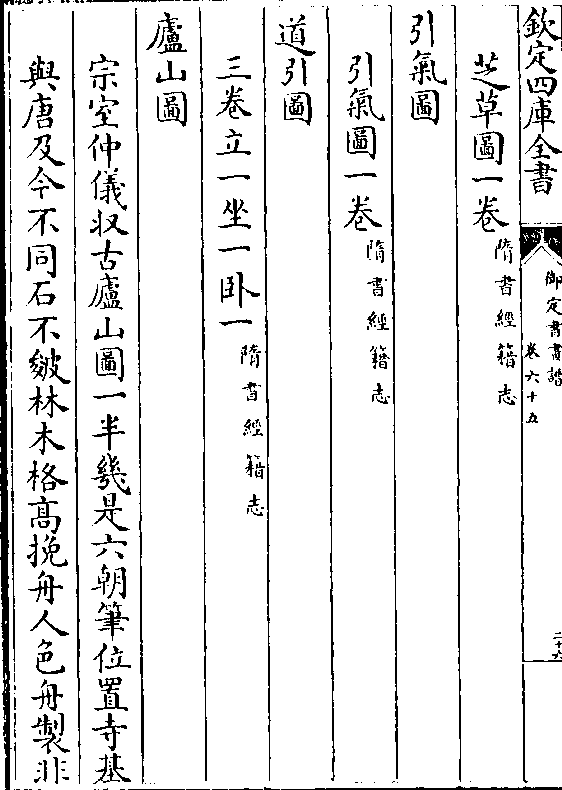 欽定四庫全書
御定書畫譜
卷六十五
二十六
芝草圖一卷隋書經籍志
引氣圖
引氣圖一卷隋書經籍志
道引圖
三卷立一坐一卧一隋書經籍志
廬山圖
宗室仲儀収古廬山圖一半幾是六朝筆位置寺基
與唐及今不同石不皴林木格髙挽舟人色舟製非